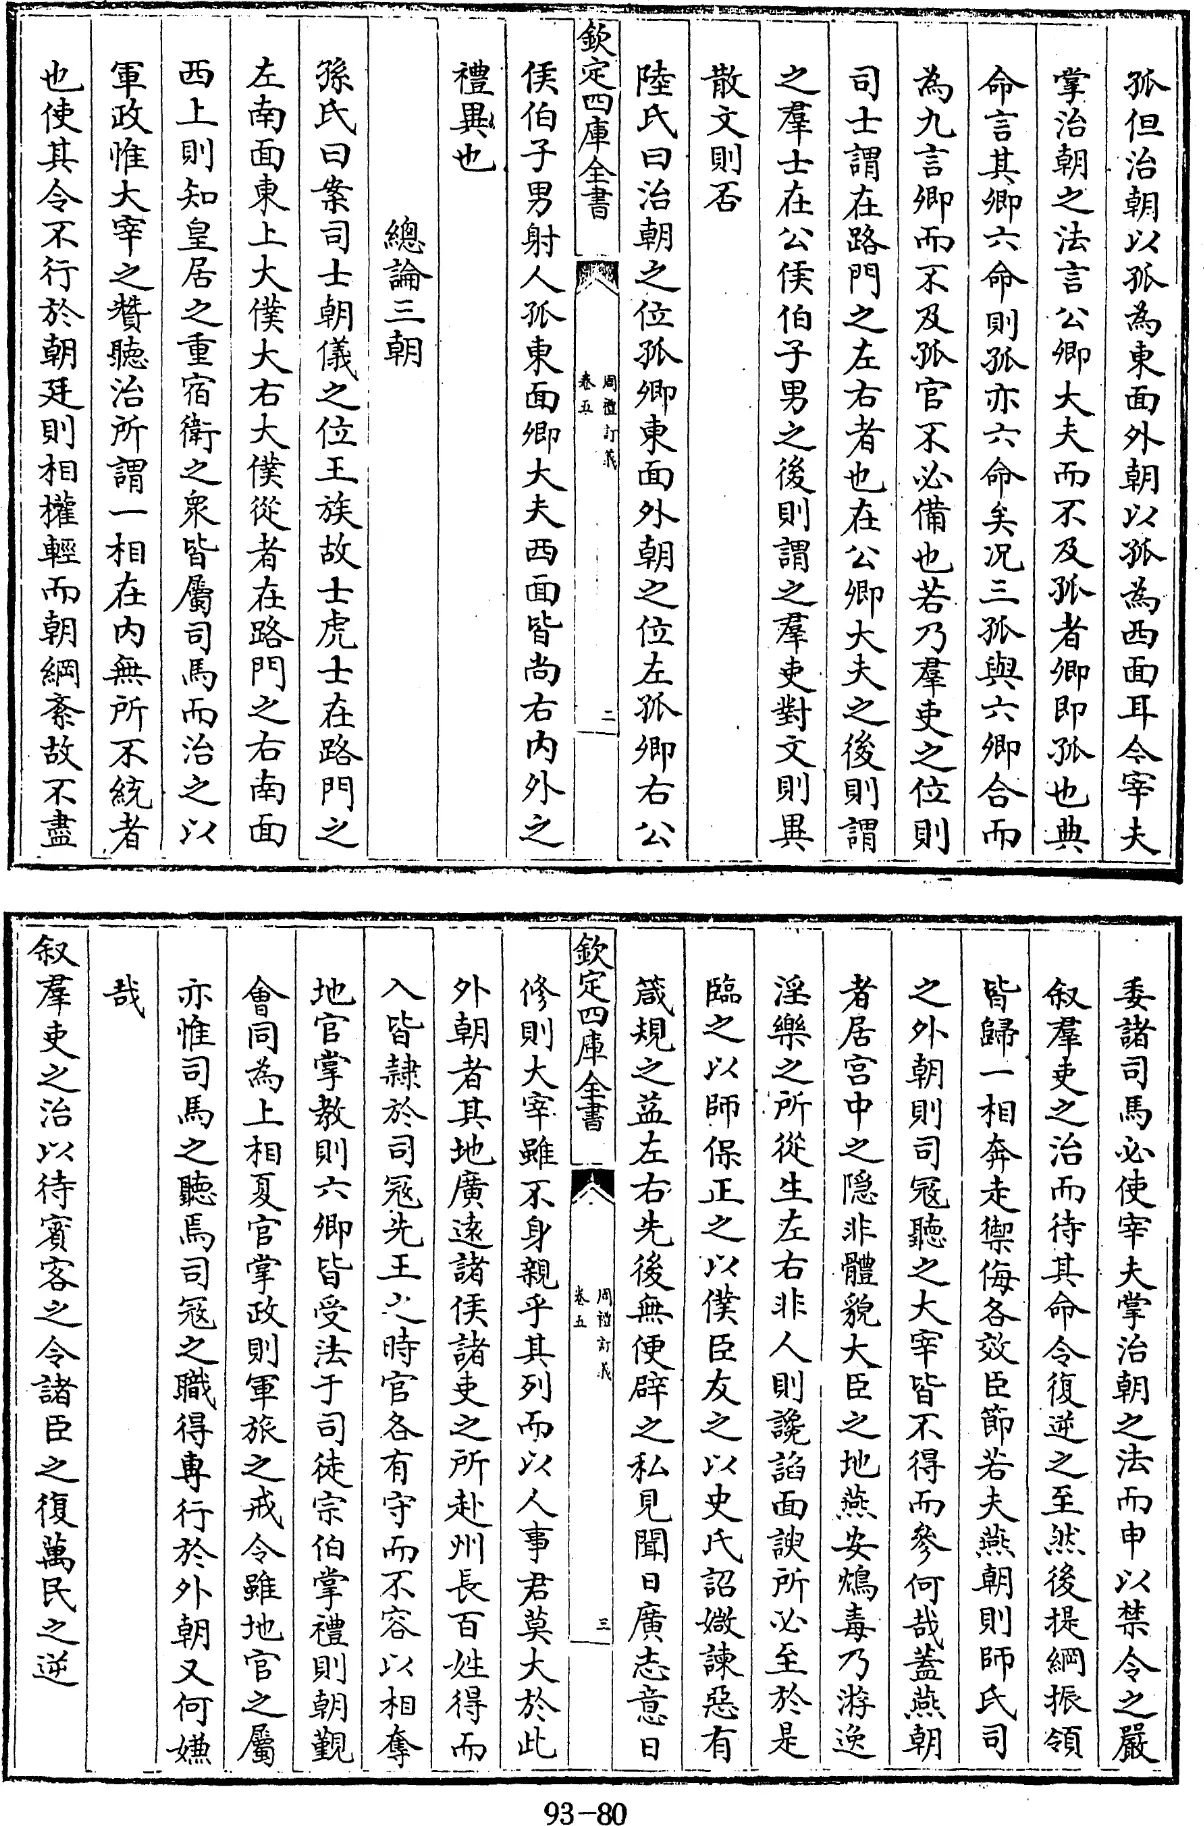 孤但治朝以孤為東面外朝以孤為西面耳令宰夫
掌治朝之法言公卿大夫而不及孤者卿即孤也典
命言其卿六命則孤亦六命矣况三孤與六卿合而
為九言卿而不及孤官不必備也若乃羣吏之位則
司士謂在路門之左右者也在公卿大夫之後則謂
之羣士在公侯伯子男之後則謂之羣吏對文則異
散文則否
陸氏曰治朝之位孤卿東面外朝之位左孤卿右公
欽定四庫全書
周禮訂義
卷五
二
侯伯子男射人孤東面卿大夫西面皆尚右内外之
禮異也
總論三朝
孫氏曰案司士朝儀之位王族故士虎士在路門之
左南面東上大僕大右大僕從者在路門之右南面
西上則知皇居之重宿衛之衆皆屬司馬而治之以
軍政惟大宰之贊聽治所謂一相在内無所不統者
也使其令不行於朝廷則相權輕而朝綱紊故不盡
委諸司馬必使宰夫掌治朝之法而申以禁令之嚴
叙羣吏之治而待其命令復逆之至然後提綱振領
皆歸一相奔走禦侮各效臣節若夫燕朝則師氏司
之外朝則司冦聽之大宰皆不得而參何哉蓋燕朝
者居宫中之隠非體貌大臣之地燕安鴆毒乃游逸
淫樂之所從生左右非人則讒諂面諛所必至於是
臨之以師保正之以僕臣友之以史氏詔媺諫惡有
箴規之益左右先後無便辟之私見聞日廣志意日
欽定四庫全書
周禮訂義
卷五
三
修則大宰雖不身親乎其列而以人事君莫大於此
外朝者其地廣遠諸侯諸吏之所赴州長百姓得而
入皆隷於司冦先王之時官各有守而不容以相奪
地官掌教則六卿皆受法于司徒宗伯掌禮則朝覲
會同為上相夏官掌政則軍旅之戒令雖地官之屬
亦惟司馬之聽焉司冦之職得専行於外朝又何嫌
哉
叙羣吏之治以待賓客之令諸臣之復萬民之逆
93-80